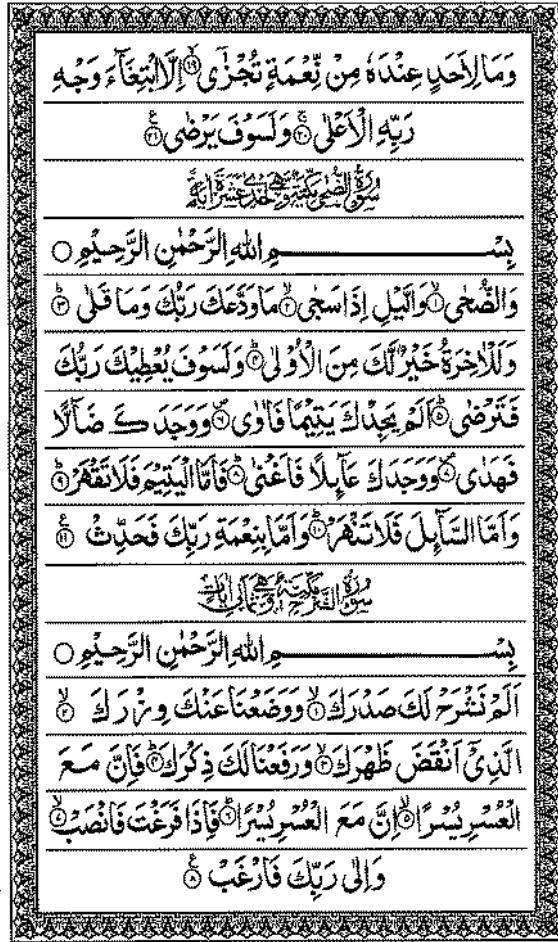 وَمَا لِاَحَدٍ عِنْدَهٗ مِنْ نِّعْمَةٍ تُجْزٰٓى ۙ۱۹ اِلَّا ابْتِغَآءَ وَجْهِ
رَبِّهِ الْاَعْلٰى ۚ۲۰ وَلَسَوْفَ يَرْضٰى ۧ۲۱
سُوْرَةُ الضُّحٰى مَكِّيَّةٌ وَّهِىَ اِحْدٰى عَشَرَةَ اٰيَةً
بِسْمِ اللّٰهِ الرَّحْمٰنِ الرَّحِيْمِ ○
وَالضُّحٰى ۙ۱ وَالَّيْلِ اِذَا سَجٰى ۙ۲ مَا وَدَّعَكَ رَبُّكَ وَمَا قَلٰى ؕ۳
وَلَلْاٰخِرَةُ خَيْرٌ لَّكَ مِنَ الْاُوْلٰى ؕ۴ وَلَسَوْفَ يُعْطِيْكَ رَبُّكَ
فَتَرْضٰى ؕ۵ اَلَمْ يَجِدْكَ يَتِيْمًا فَاٰوٰى ۪۶ وَوَجَدَكَ ضَآلًّا
فَهَدٰى ۪۷ وَوَجَدَكَ عَآئِلًا فَاَغْنٰى ؕ۸ فَاَمَّا الْيَتِيْمَ فَلَا تَقْهَرْ ؕ۹
وَاَمَّا السَّآئِلَ فَلَا تَنْهَرْ ؕ۱۰ وَاَمَّا بِنِعْمَةِ رَبِّكَ فَحَدِّثْ ۧ۱۱
سُوْرَةُ الشَّرْحِ مَكِّيَّةٌ وَّهِىَ ثَمَانِىْ اٰيَاتٍ
بِسْمِ اللّٰهِ الرَّحْمٰنِ الرَّحِيْمِ ○
اَلَمْ نَشْرَحْ لَكَ صَدْرَكَ ۙ۱ وَوَضَعْنَا عَنْكَ وِزْرَكَ ۙ۲
الَّذِىْٓ اَنْقَضَ ظَهْرَكَ ۙ۳ وَرَفَعْنَا لَكَ ذِكْرَكَ ؕ۴ فَاِنَّ مَعَ
الْعُسْرِ يُسْرًا ۙ۵ اِنَّ مَعَ الْعُسْرِ يُسْرًا ؕ۶ فَاِذَا فَرَغْتَ فَانْصَبْ ۙ۷
وَاِلٰى رَبِّكَ فَارْغَبْ ۧ۸